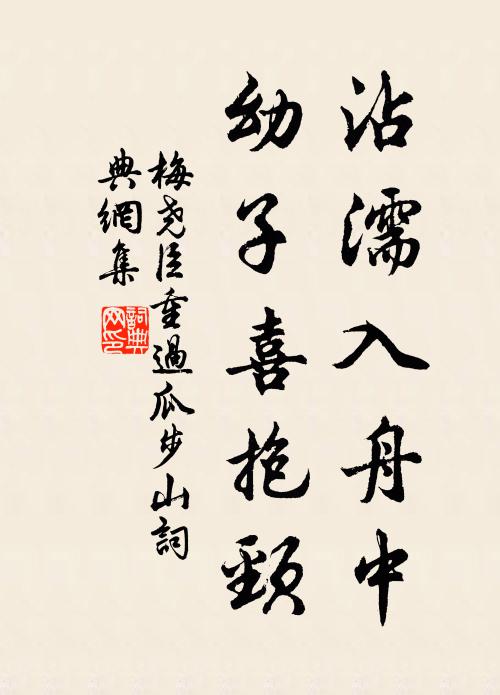 沾濡入舟中
幼子喜抱頸
梅堯臣重過瓜步山詞
典網集
詞典网印